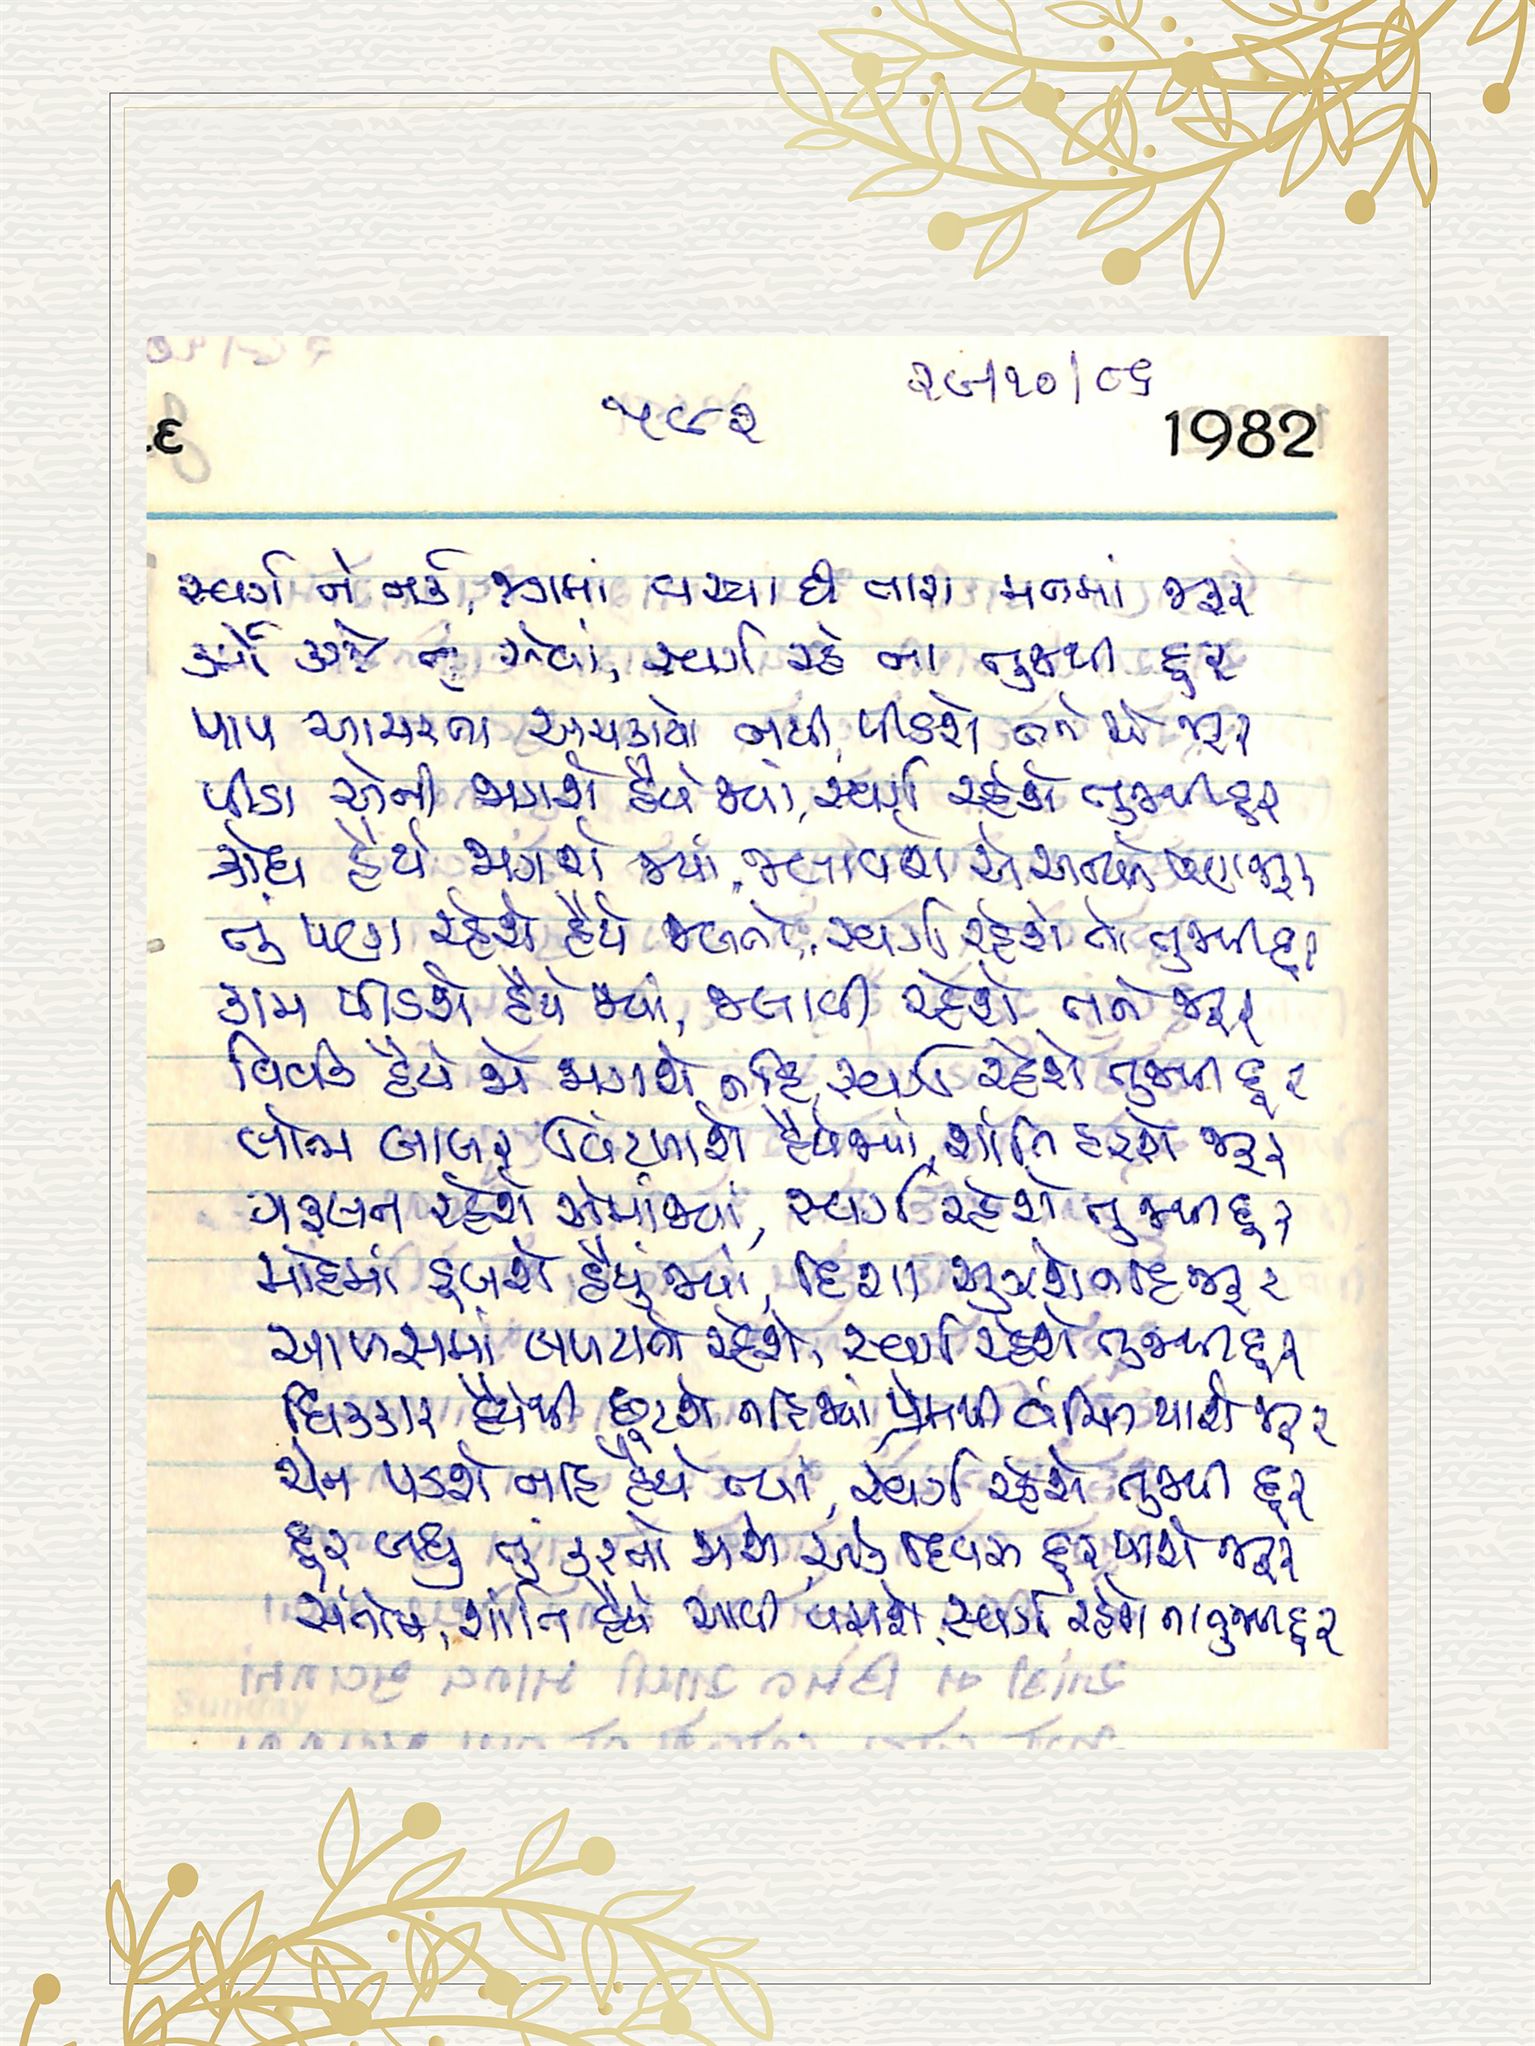 ૨૯/૧૦/૮૬
૫૯૨
1982
સ્વર્ગ ને નર્ક, જગમાં વસ્યા છે તારા મનમાં જરૂર
કર્મો કરજે તું એવાં, સ્વર્ગ રહે ના તુજથી દૂર
પાપ આચરતા અચકાયો નથી, પીડશે તને એ જરૂર
પીડા એની જાગશે હૈયે જ્યાં, સ્વર્ગ રહેશે તુજથી દૂર
ક્રોધ હૈયે જાગશે જ્યાં, જલાવશે એ અન્યને પણ જરૂર
તું પણ રહેશે હૈયે જલતો, સ્વર્ગ રહેશે તો તુજથી દૂર
કામ પીડશે હૈયે જ્યાં, જલાવી રહેશે તને જરૂર
વિવેક હૈયે જો જાગશે નહિ, સ્વર્ગ રહેશે તુજથી દૂર
લોભ લાલચ વિંટળાશે હૈયે જ્યાં, શાંતિ હરશે જરૂર
ગરકાવ રહેશે એમાં જ્યાં, સ્વર્ગ રહેશે તુજથી દૂર
મોહમાં ડૂબશે હૈયું જ્યાં, દિશા સુઝશે નહિ જરૂર
આળસમાં લપટાતો રહેશે, સ્વર્ગ રહેશે તુજથી દૂર
ધિક્કાર હૈયેથી છૂટશે નહિ જ્યાં, પ્રેમથી વંચિત થાશે જરૂર
ચેન પડશે નહિ હૈયે ત્યાં, સ્વર્ગ રહેશે તુજથી દૂર
દૂર બધુ તું કરતો જાશે, એક દિવસ દૂર થાશે જરૂર
સંતોષ, શાંતિ હૈયે આવી વસશે, સ્વર્ગ રહેશે ના તુજથી દૂર